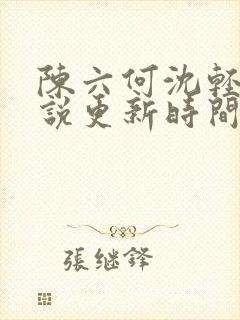 陳六何沈輕
說更新時間
張继鋒